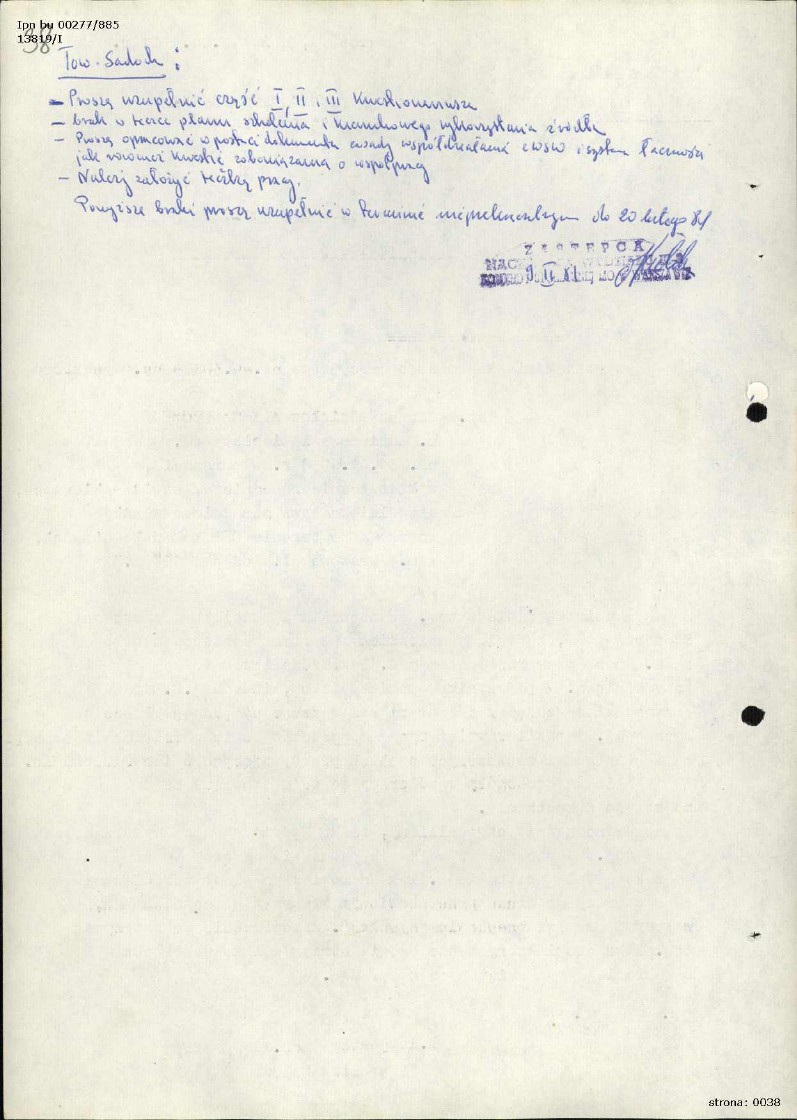 Ipn bu 00277/885
13819/I
38
Tow. Sadoch :
- Proszę uzupełnić część I, II i III Kwestionariusza
- Brak w teczce planu szkolenia i kierunkowego wykorzystania źródła
- Proszę opracować w postaci dokumentu zasady współdziałania z WSW i system łączności
jak również kwestię zobowiązania o współpracy
- Należy założyć teczkę pracy.
Powyższe braki proszę uzupełnić w terminie nieprzekraczalnym do 20 lutego 81
ZASTĘPCA
9 II 81
strona: 0038